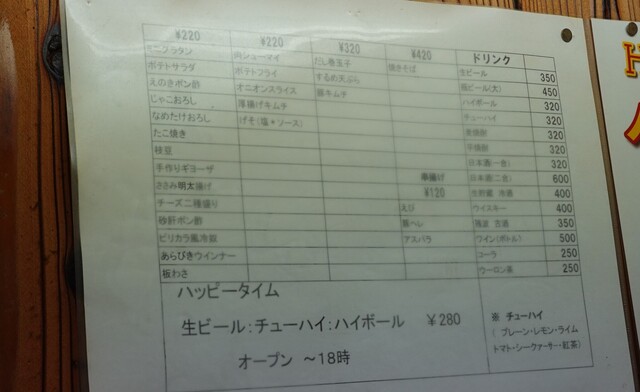 ¥220 ¥220 ¥320 ¥420 ドリンク
肉シューマイ だし巻玉子 焼きそば 生ビール 350
ポテトサラダ ポテトフライ するめ天ぷら 瓶ビール(大) 450
えのきポン酢 オニオンスライス 豚キムチ ハイボール 320
じゃこおろし 厚揚げキムチ チューハイ 320
なめたけおろし げそ(塩・ソース) 320
たこ焼き 320
枝豆 日本酒(一合) 320
手作りギョーザ 串揚げ 日本酒(二合) 600
ささみ明太揚げ ¥120 生貯蔵 冷酒 400
チーズ二種盛り えび ウイスキー 400
砂肝ポン酢 豚ヘレ 350
ピリカラ風冷奴 アスパラ ワイン(ボトル) 500
あらびきウインナー コーラ 250
板わさ ウーロン茶 250
ハッピータイム
生ビール:チューハイ:ハイボール ¥280
オープン ~18時
※ チューハイ
( プレーン・レモン・ライム
トマト・シークァーサー・紅茶)